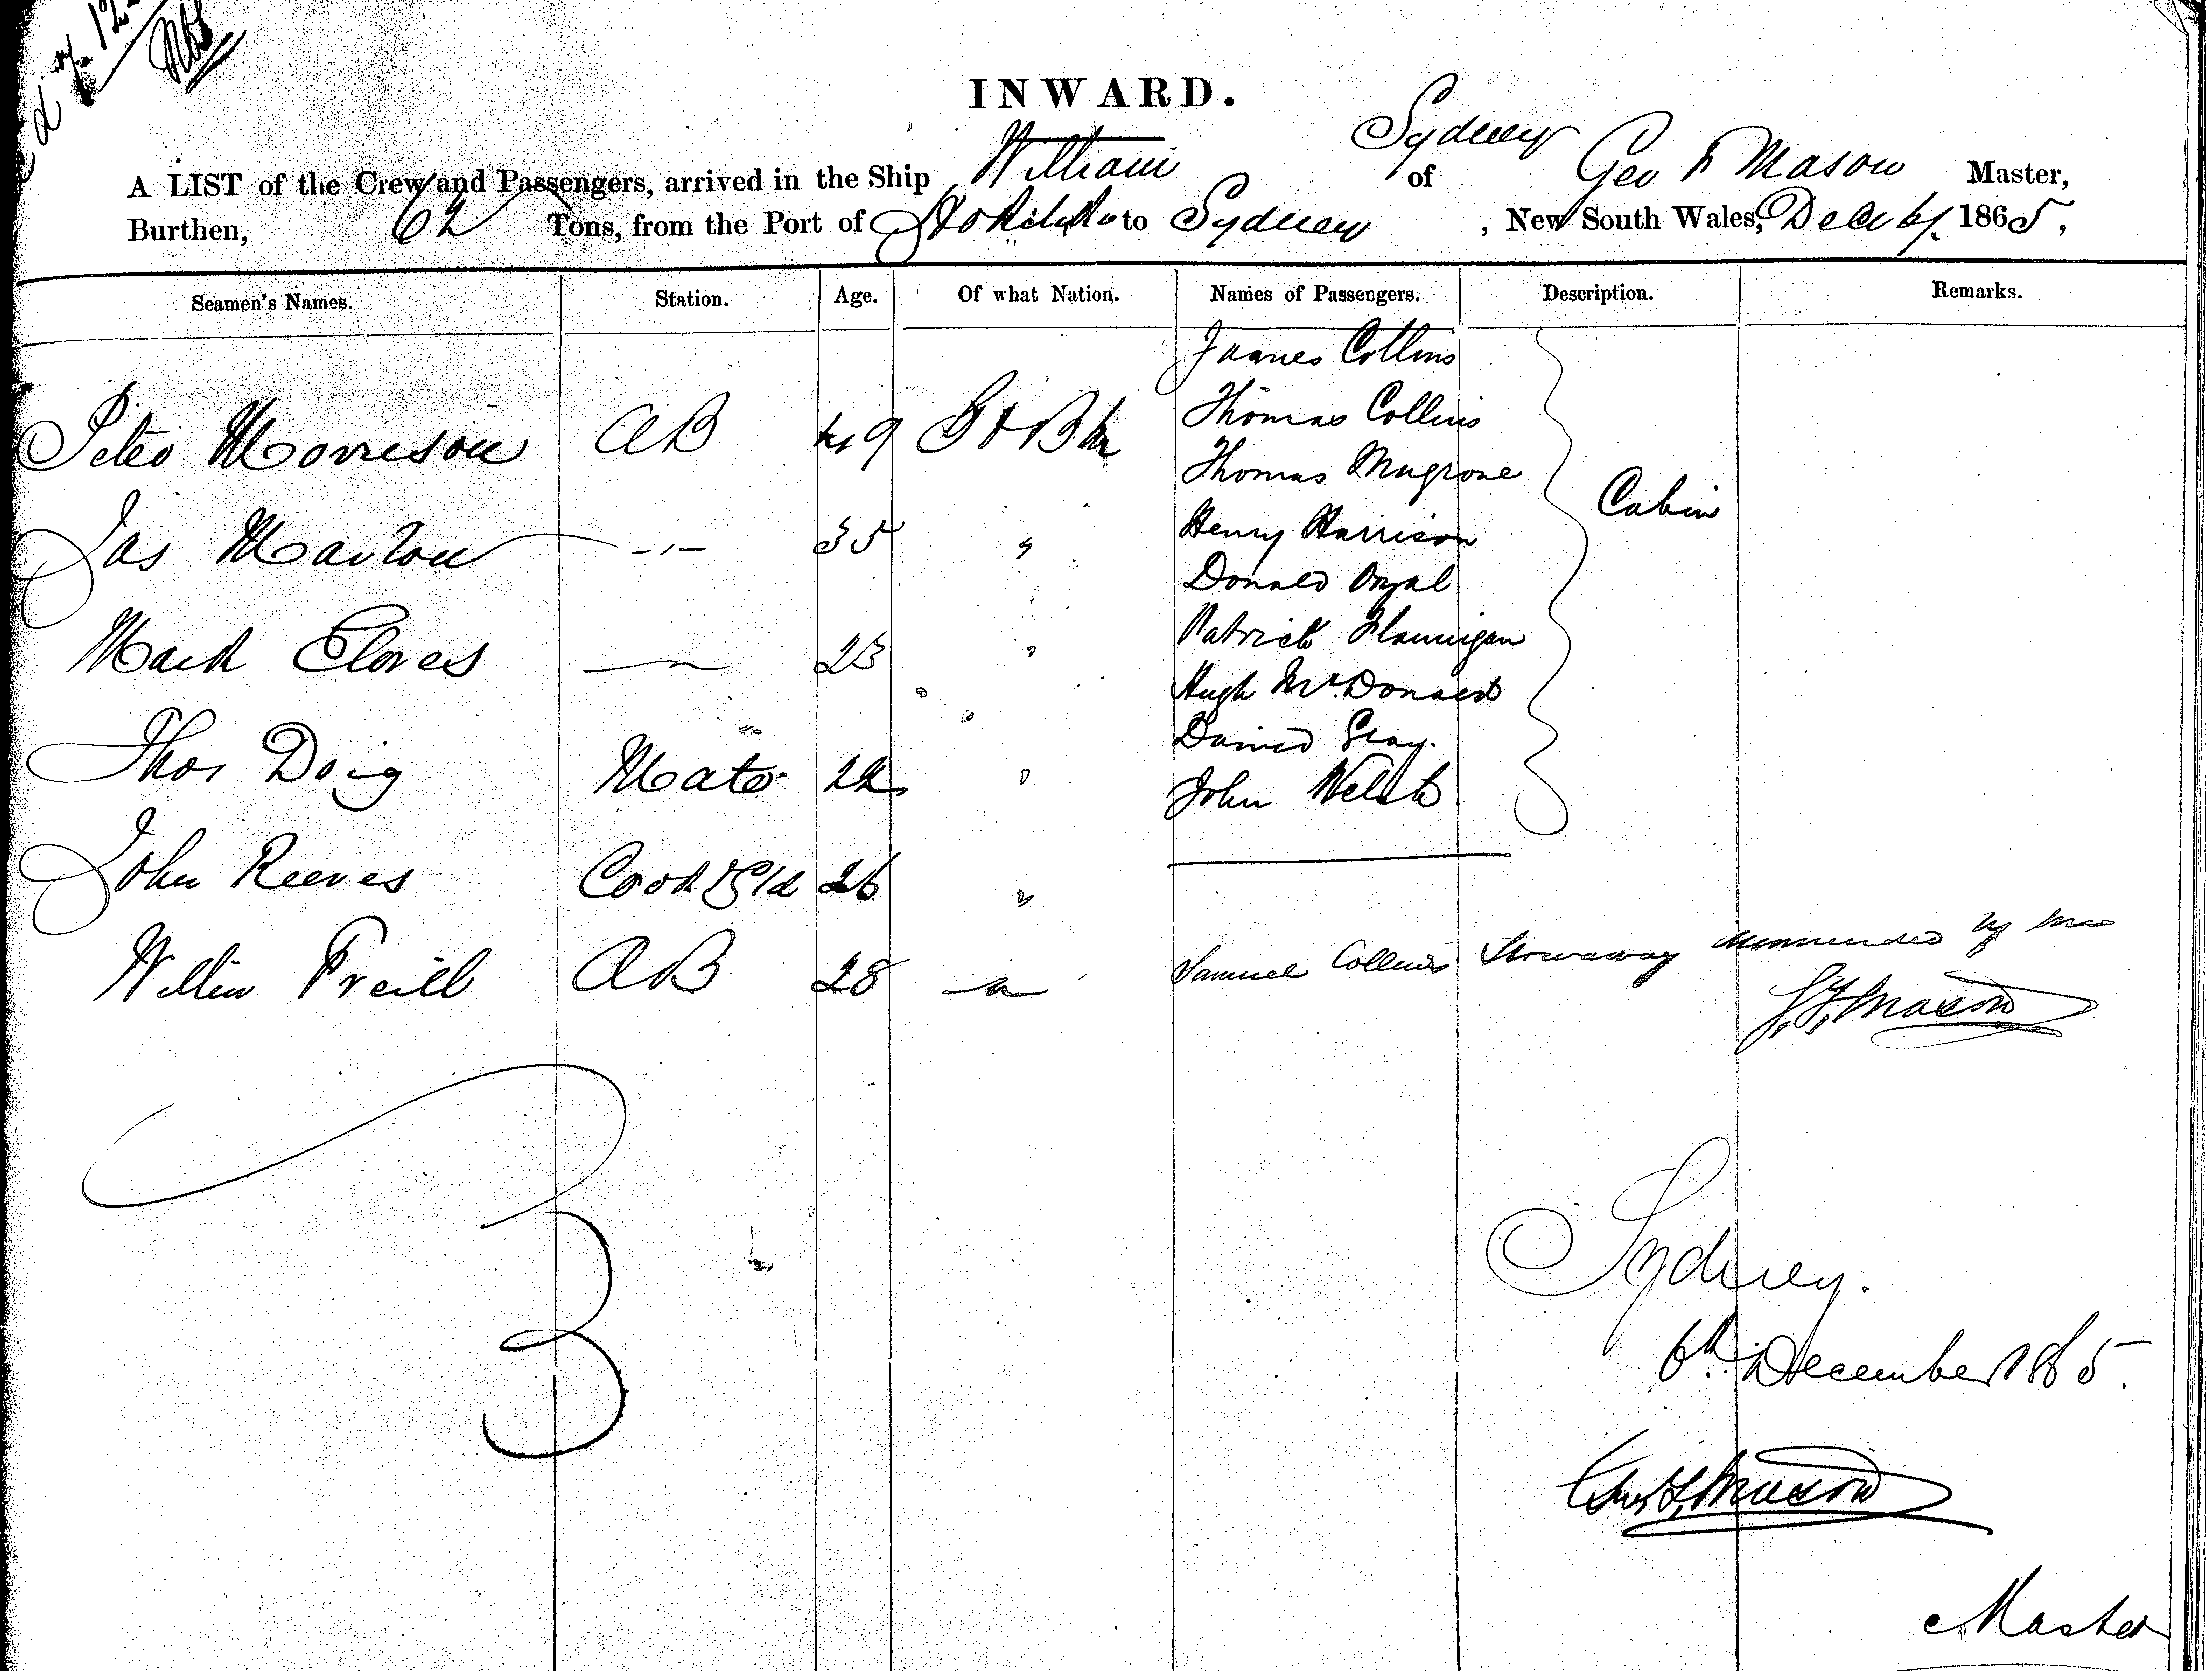 INWARD.
A LIST of the Crew and Passengers, arrived in the Ship William of Sydney Geo F Mason Master,
Burthen, 62 Tons, from the Port of Hokitika to Sydney, New South Wales, Dec 6/. 1865,
Seamen's Names. Station. Age. Of what Nation. Names of Passengers. Description. Remarks.
James Collins
Peter Morrison AB 49 Gt Bn Thomas Collins
Thomas Mugrove Cabin
Jas Marlow -"- 35 " Henry Harrison
Donald
Mark Cloves " 23 " Patrick Flannigan
Hugh McDonald
Thos Doig Mate 22 " Gray.
John Welsh
John Reeves Cook & Sld 26 "
Willm Freill AB 28 " Samuel Collins Stowaway by me
G. F. Mason
3
Sydney.
6th December 1865.
Geo F. Mason
Master